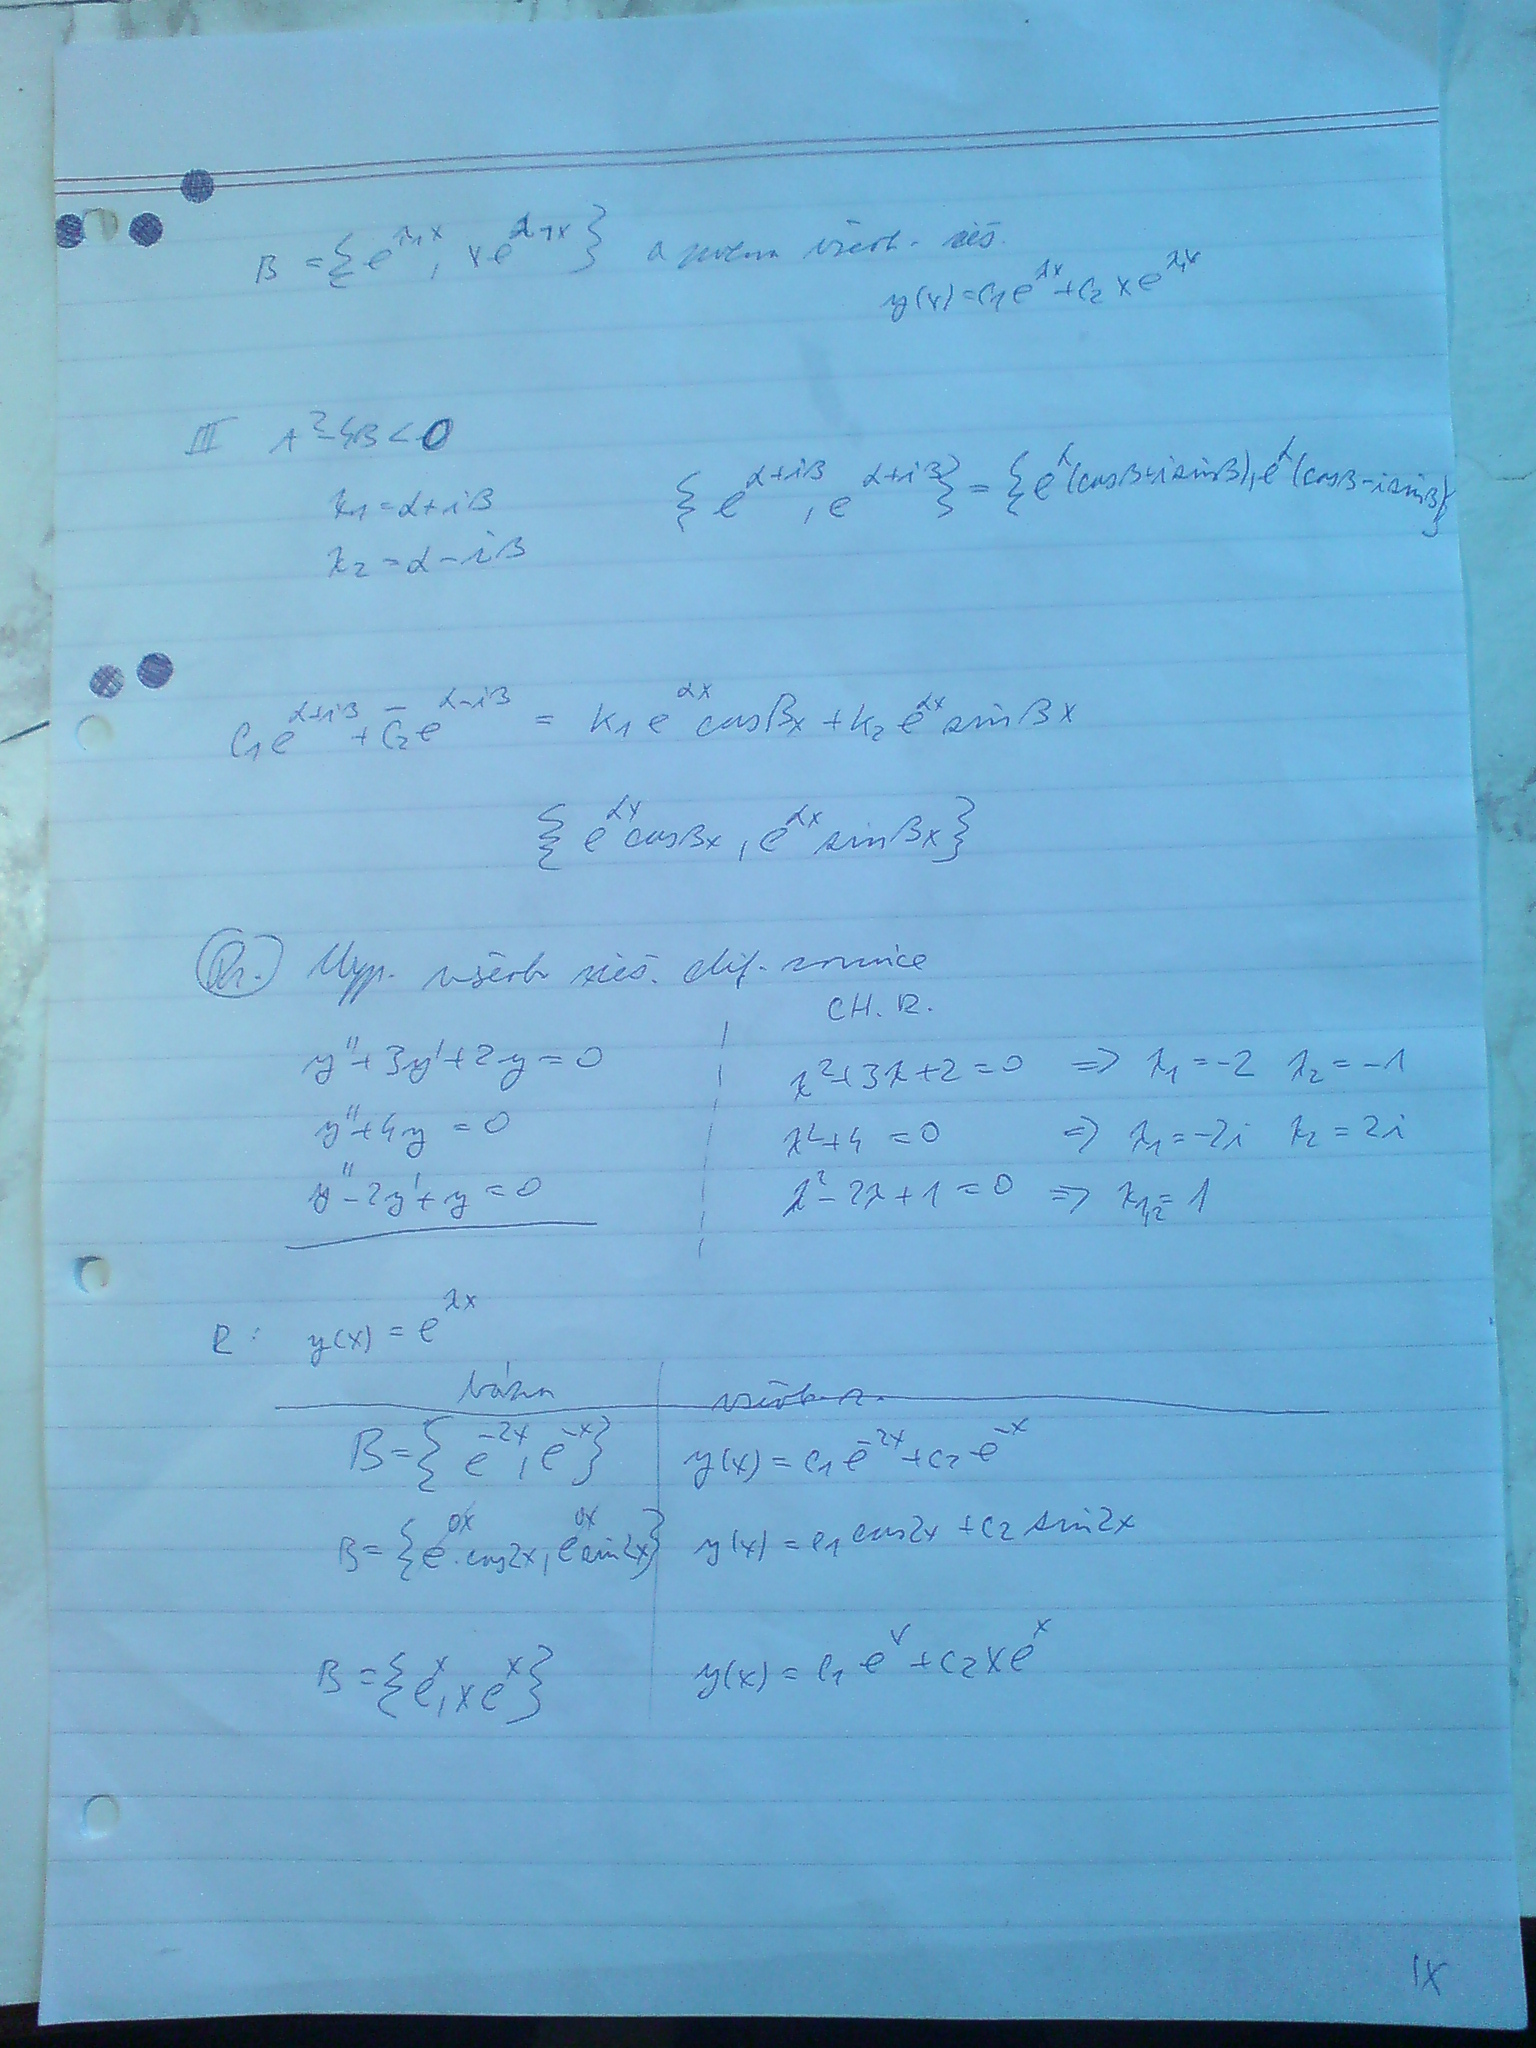 B = {e^{λ₁x}, xe^{λ₁x}} a všeob. rieš.
y(x) = C₁e^{λx} + C₂xe^{λ₁x}
III A² - 4B < 0
λ₁ = α + iβ
λ₂ = α - iβ
{e^{α+iβ}, e^{α+iβ}} = {e^α(cosβ + i sinβ), e^α(cosβ - i sinβ)}
C₁e^{α+iβ} + C̄₂e^{α-iβ} = K₁e^{αx}cosβx + K₂e^{αx}sinβx
{e^{αx}cosβx, e^{αx}sinβx}
Pr. Vyp. všeob rieš. dif. rovnice
CH. R.
y'' + 3y' + 2y = 0 λ² + 3λ + 2 = 0 => λ₁ = -2 λ₂ = -1
y'' + 4y = 0 λ² + 4 = 0 => λ₁ = -2i λ₂ = 2i
y'' - 2y' + y = 0 λ² - 2λ + 1 = 0 => λ₁,₂ = 1
R: y(x) = e^{λx}
báza všeob. r.
B = {e^{-2x}, e^{-x}} y(x) = C₁e^{-2x} + C₂e^{-x}
B = {e^{0x}.cos2x, e^{0x}sin2x} y(x) = C₁cos2x + C₂sin2x
B = {e^x, xe^x} y(x) = C₁e^x + C₂xe^x
IX